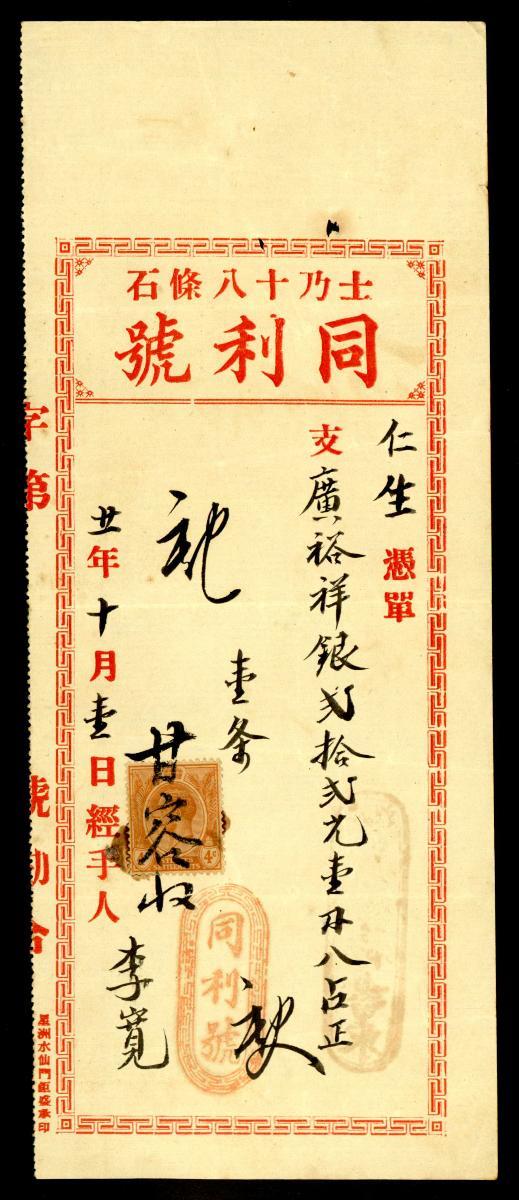 士乃十八條石
同利號
仁生憑單
支廣裕祥銀弍拾弍元壹角八占正
壹条
甘容收
廿年十月壹日經手人李寬
同利號
4c
字第 號勘合
星洲水仙門鉅盛承印